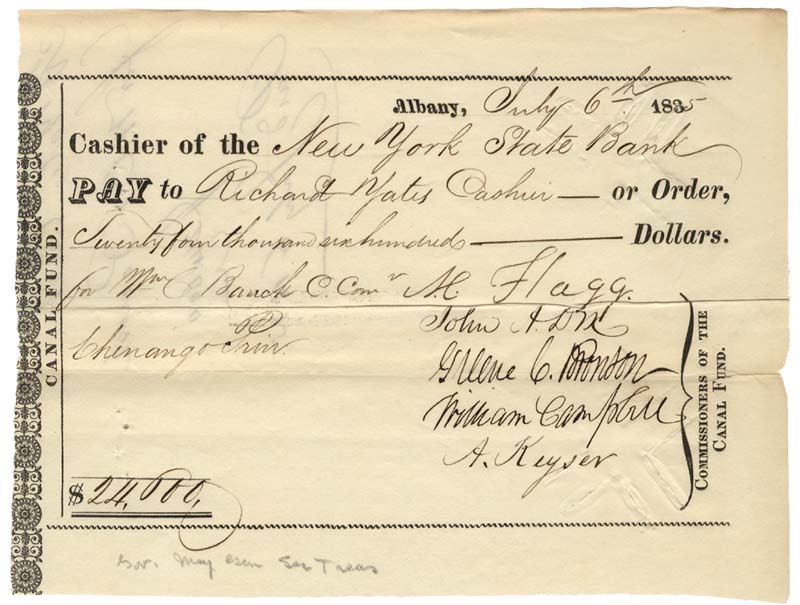 Albany, July 6th 1835
Cashier of the New York State Bank
PAY to Richard Yates Cashier — or Order,
Twenty four thousand six hundred — Dollars.
for Wm Bauck C. Comr
Chenango
A. C. Flagg.
John A. Dix
Greene C. Bronson
William Campbell
A. Keyser
COMMISSIONERS OF THE
CANAL FUND.
CANAL FUND.
$24,600,
Gov. May Sec Treas